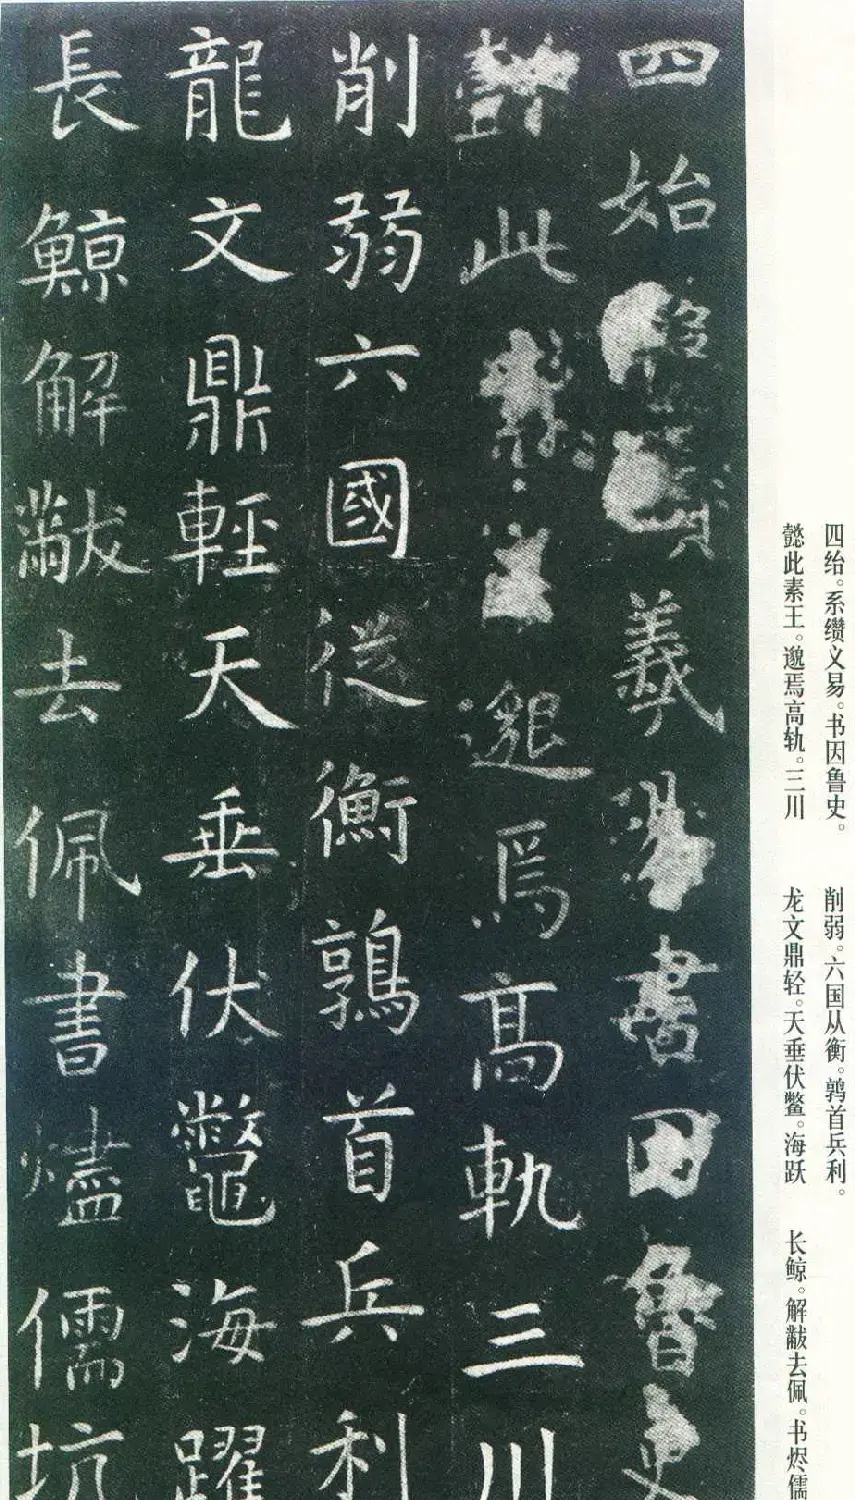 四始羲易書因魯史
懿此素王邈焉高軌三川
削弱六國從衡鶉首兵利
龍文鼎輕天垂伏鼈海躍
長鯨解黻去佩書燼儒坑
四绐。系缵义易。书因鲁史。
懿此素王。邈焉高轨。三川
削弱。六国从衡。鹑首兵利。
龙文鼎轻。天垂伏鳖。海跃
长鲸。解黻去佩。书烬儒